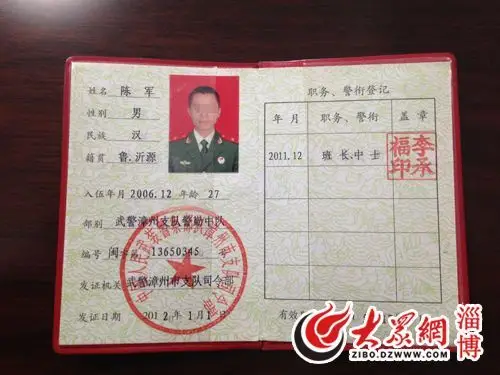 姓名 陈军
性别 男
民族 汉
籍贯 鲁.沂源
入伍年月 2006.12 年龄 27
部别 武警漳州支队警勤中队
编号 13650345
发证机关 武警漳州市支队司令部
发证日期 2012年1月1日
职务、警衔登记
年月 职务、警衔 盖章
2011.12 班长、中士 李承福印
有效
大众網 淄博
ZIBO.DZWWW.COM